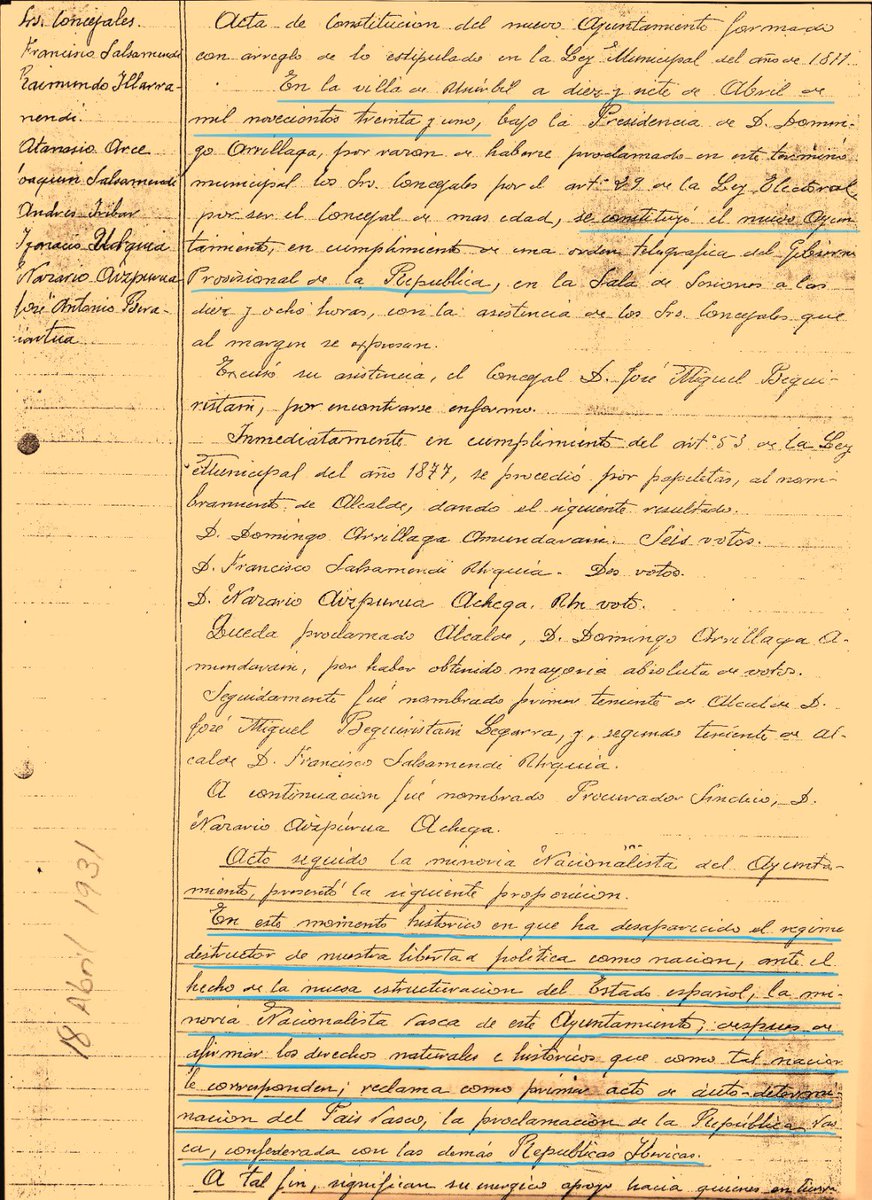 Srs. Concejales.
Francisco Salsamendi
Raimundo Illarra-
mendi
Atanasio Arce
Joaquin Salsamendi
Andrés Iribar
Ignacio Urquia
Nazario Aizpurua
José Antonio Bera-
18 Abril 1931
Acta de Constitucion del nuevo Ayuntamiento formado
con arreglo de lo estipulado en la Ley Municipal del año de 1877
En la villa de Usúrbil a diez y siete de Abril de
mil novecientos treinta y uno, bajo la Presidencia de D. Domin-
go Arrillaga, por razon de haberse proclamado en este termino
municipal los Srs. Concejales por el artº 29 de la Ley Electoral,
por ser el Concejal de mas edad, se constituyó el nuevo Ayun-
tamiento, en cumplimiento de una orden telegrafica del Gobierno
Provisional de la Republica, en la Sala de Sesiones a las
diez y ocho horas, con la asistencia de los Srs. Concejales que
al margen se expresan.
Excusó su asistencia, el Concejal D. José Miguel Begui-
ristain, por encontrarse enfermo.
Inmediatamente en cumplimiento del artº 53 de la Ley
Municipal del año 1877, se procedió por papeletas, al nom-
bramiento de Alcalde, dando el siguiente resultado.
D. Domingo Arrillaga Amundarain. Seis votos.
D. Francisco Salsamendi Urquia. Dos votos.
D. Nazario Aizpurua Achega. Un voto.
Queda proclamado Alcalde, D. Domingo Arrillaga A-
mundarain, por haber obtenido mayoria absoluta de votos.
Seguidamente fué nombrado primer teniente de Alcalde D.
José Miguel Beguiristain Legarra, y, segundo teniente de Al-
calde D. Francisco Salsamendi Urquia.
A continuacion fué nombrado Procurador Sindico, D.
Nazario Aizpúrua Achega.
Acto seguido la minoria Nacionalista del Ayunta-
miento, presentó la siguiente proposicion.
En este momento historico en que ha desaparecido el regimen
destructor de nuestra libertad politica como nacion, ante el
hecho de la nueva estructuracion del Estado español, la mi-
noria Nacionalista Vasca de este Ayuntamiento, despues de
afirmar los derechos naturales e históricos que como tal nacion
le corresponden; reclama como primer acto de auto-determi-
nacion del Pais Vasco, la proclamacion de la República Vas-
ca, confederada con las demás Republicas Ibericas.
A tal fin, significan su energico apoyo hacia quienes en